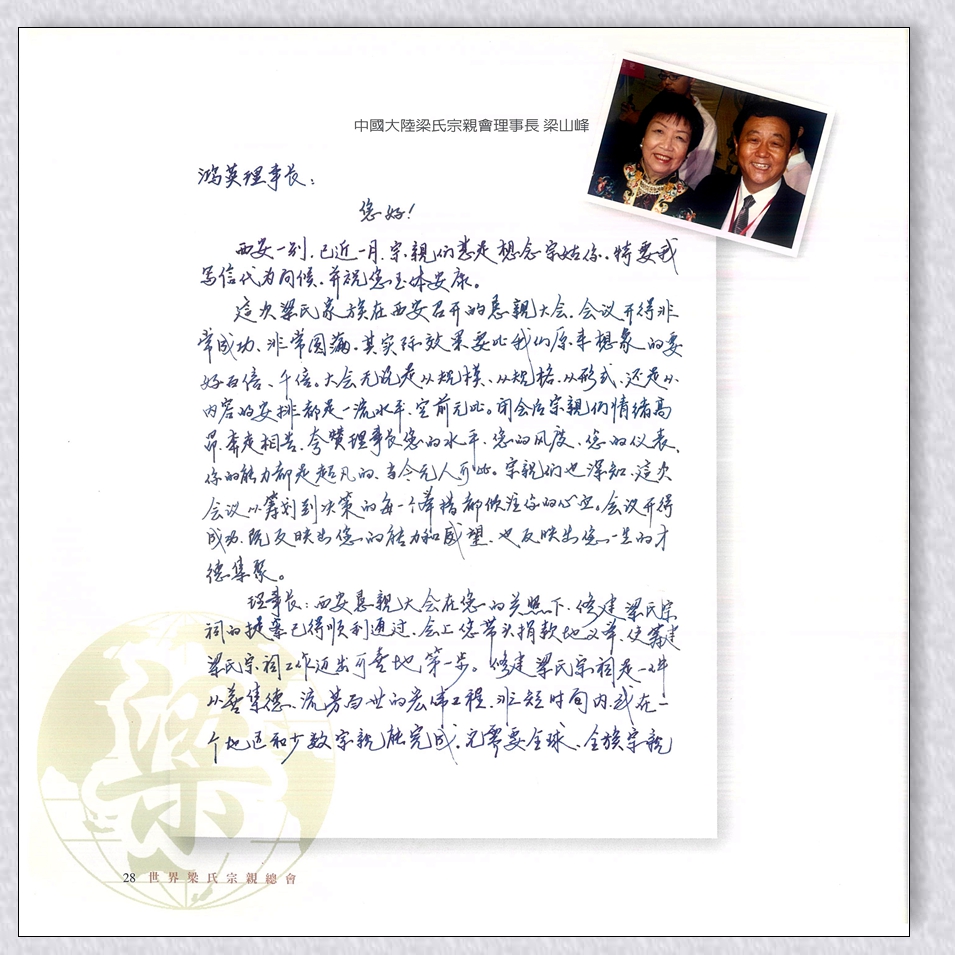 中國大陸梁氏宗親會理事長 梁山峰
鴻英理事长：
您好！
西安一别，已近一月，宗親们老是想念宗姑你，特要我
写信代为问候，并祝您玉体安康。
這次梁氏家族在西安召开的恳親大会，会议开得非
常成功、非常圆滿，其实际效果要比我们原来想象的要
好百倍、千倍。大会无论是从规模、从规格、从形式、还是从
内容的安排都是一流水平，空前无比。闭会后宗親们情绪高
昂，奔走相告，夸赞理事长您的水平、您的风度、您的仪表、
你的能力都是超凡的，当今无人可比。宗親们也深知，這次
会议从筹划到决策的每一个举措都倾注你的心血。会议开得
成功，既反映出您的能力和威望，也反映出您一生的才
德集聚。
理事长：西安恳親大会在您的关照下，修建梁氏宗
祠的提案已得顺利通过，会上您带头捐款地义举，使筹建
梁氏宗祠工作迈出可喜地第一步。修建梁氏宗祠是一件
从善集德、流芳百世的宏伟工程，非短时间内，或在一
个地区和少数宗親能完成，尤需要全球、全族宗親
梁
28 世界梁氏宗親總會